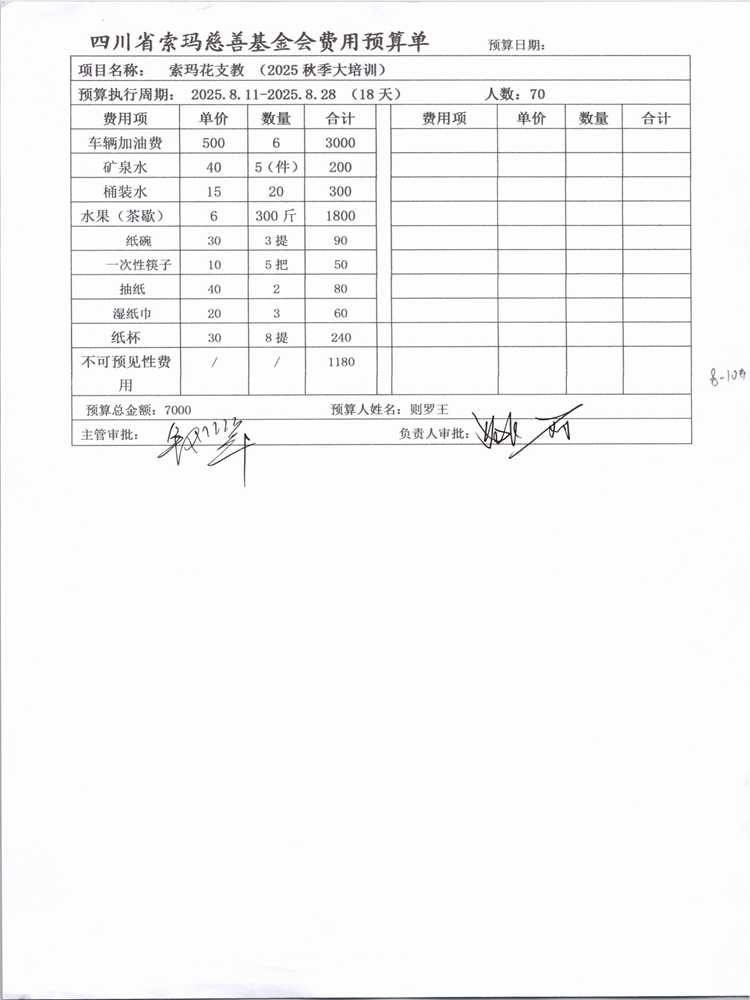 四川省索玛慈善基金会费用预算单 预算日期:
项目名称: 索玛花支教 (2025 秋季大培训)
预算执行周期: 2025.8.11-2025.8.28 (18 天) 人数: 70
费用项 单价 数量 合计 费用项 单价 数量 合计
车辆加油费 500 6 3000
矿泉水 40 5(件) 200
桶装水 15 20 300
水果(茶歇) 6 300 斤 1800
纸碗 30 3 提 90
一次性筷子 10 5 把 50
抽纸 40 2 80
湿纸巾 20 3 60
纸杯 30 8 提 240
不可预见性费 / / 1180
用
预算总金额: 7000 预算人姓名: 则罗王
主管审批: 负责人审批: